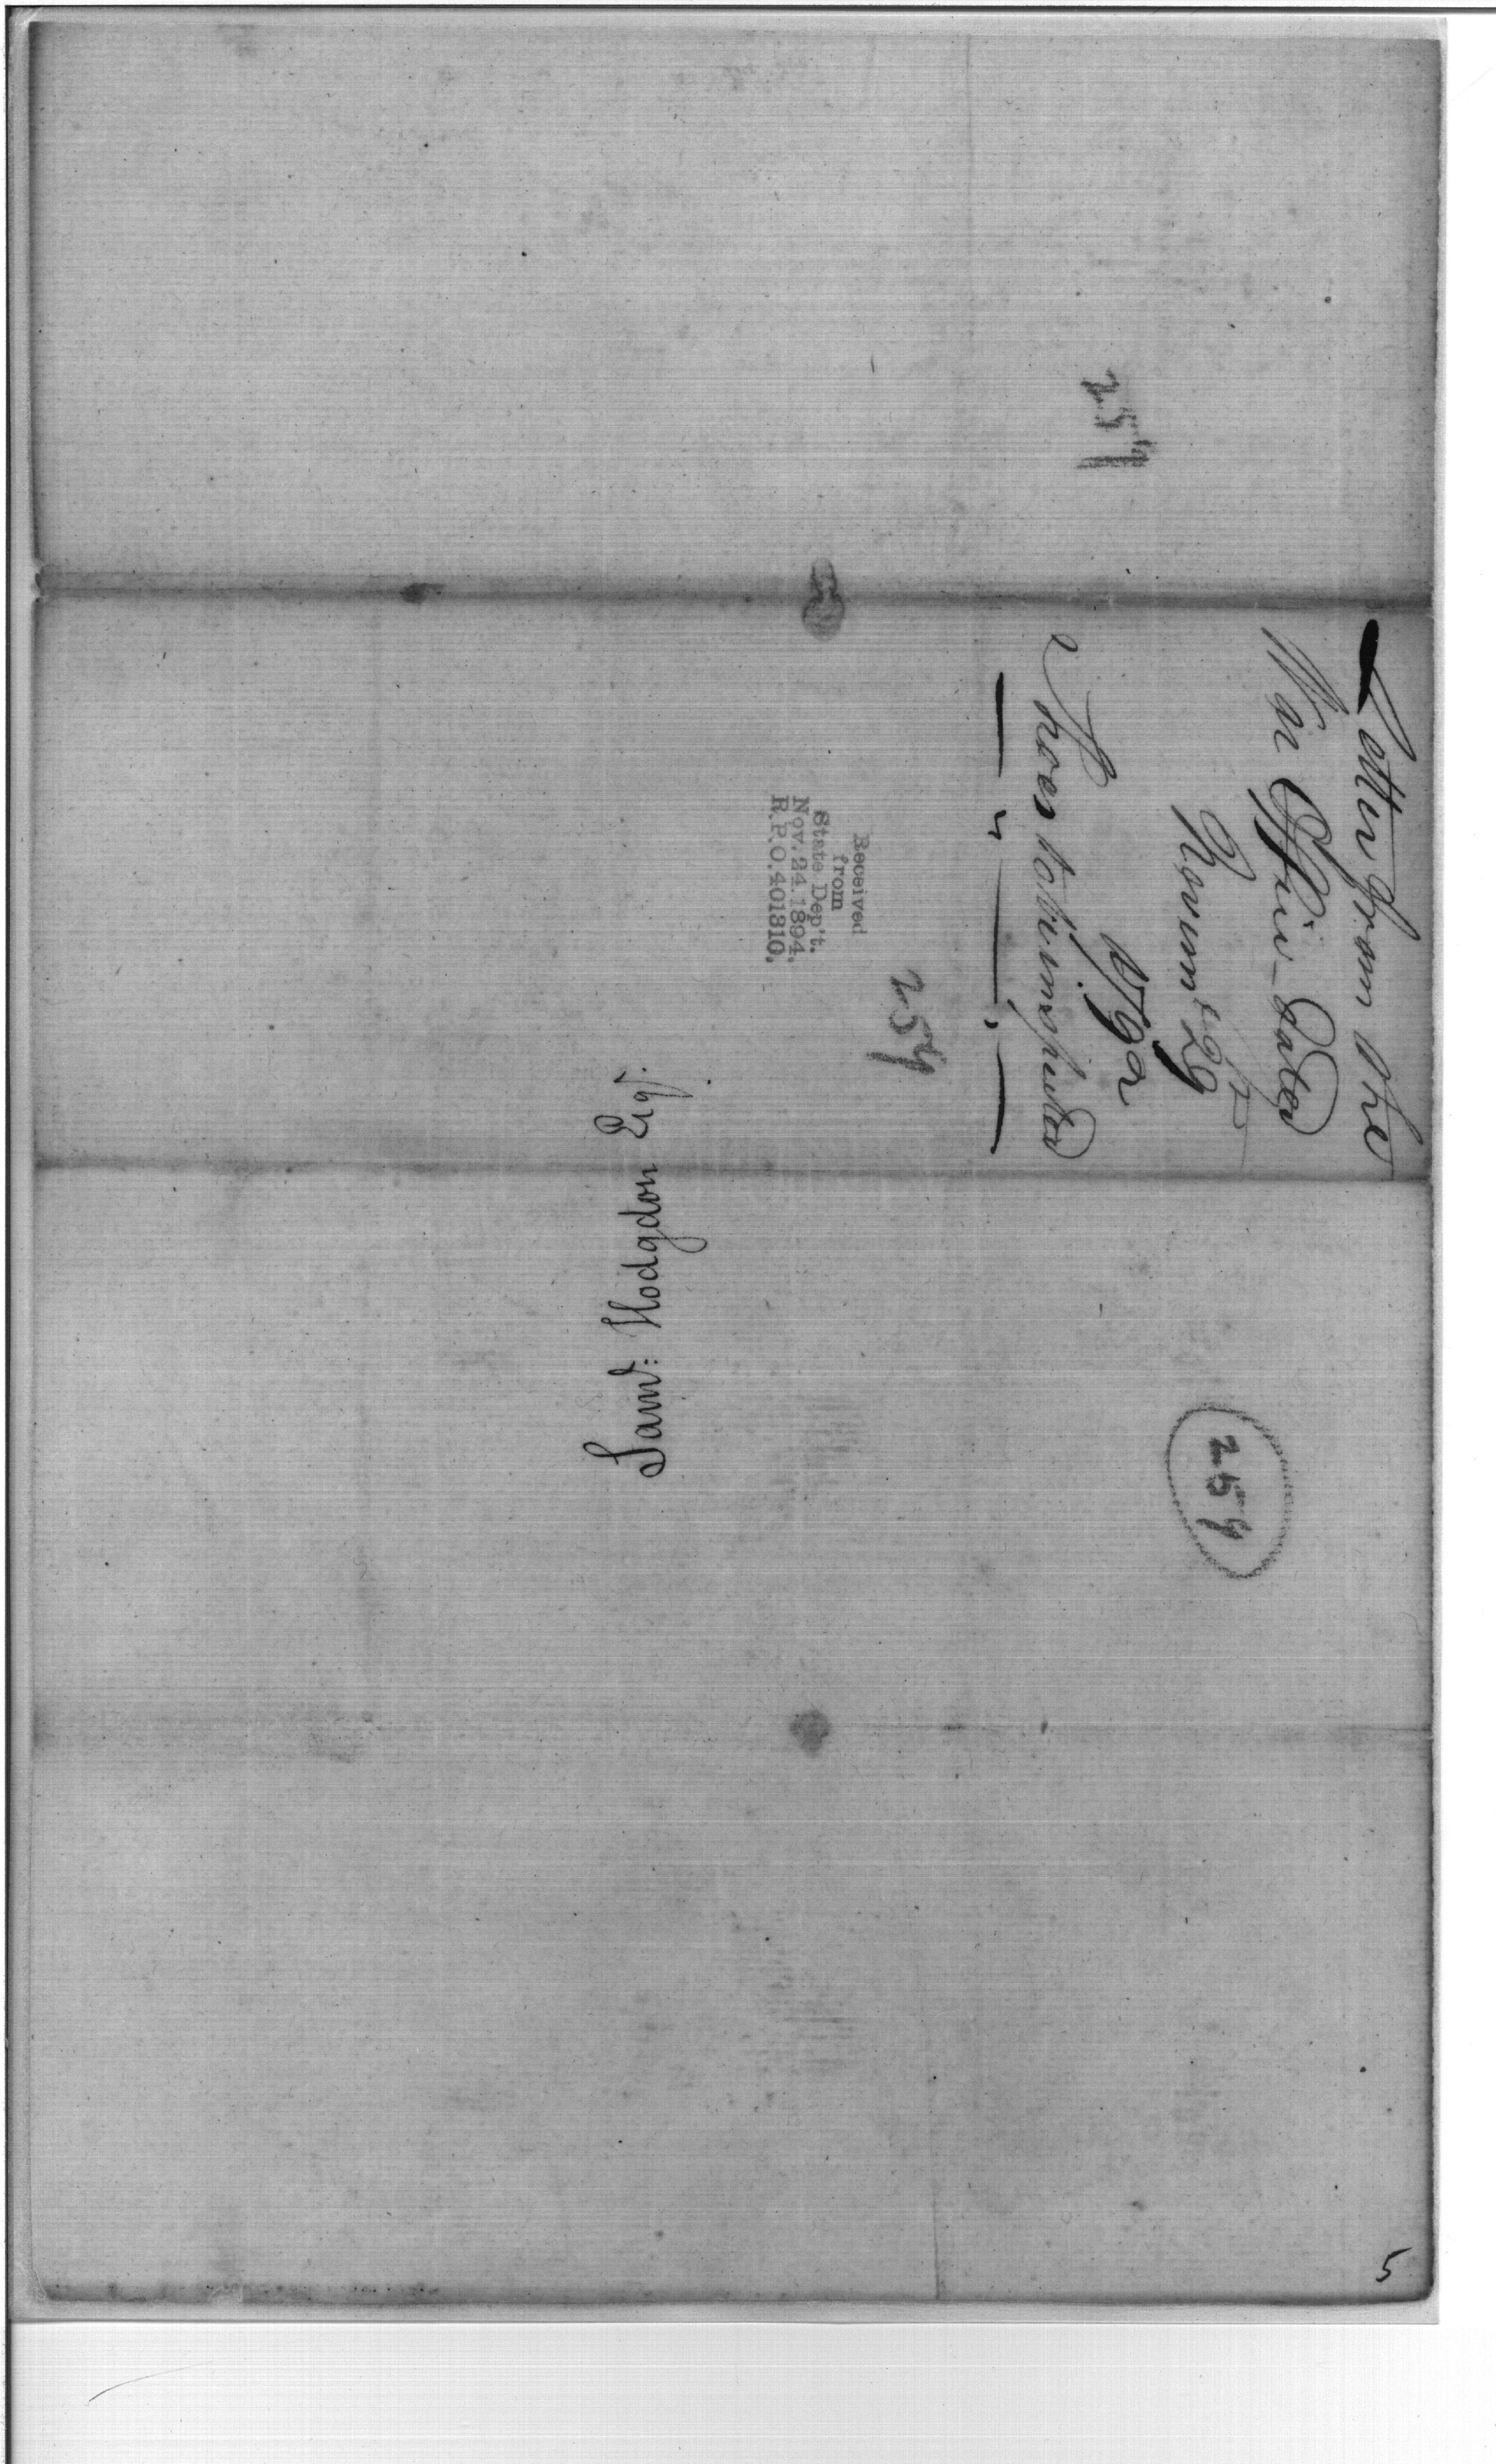 Letter from the
War Office dated
Novem.r 29th
1792
Shoes to be inspected
259
Received
from
State Dep't.
Nov. 24. 1894.
R.P.O. 401310.
Saml: Hodgdon Esqr.
259
259
5